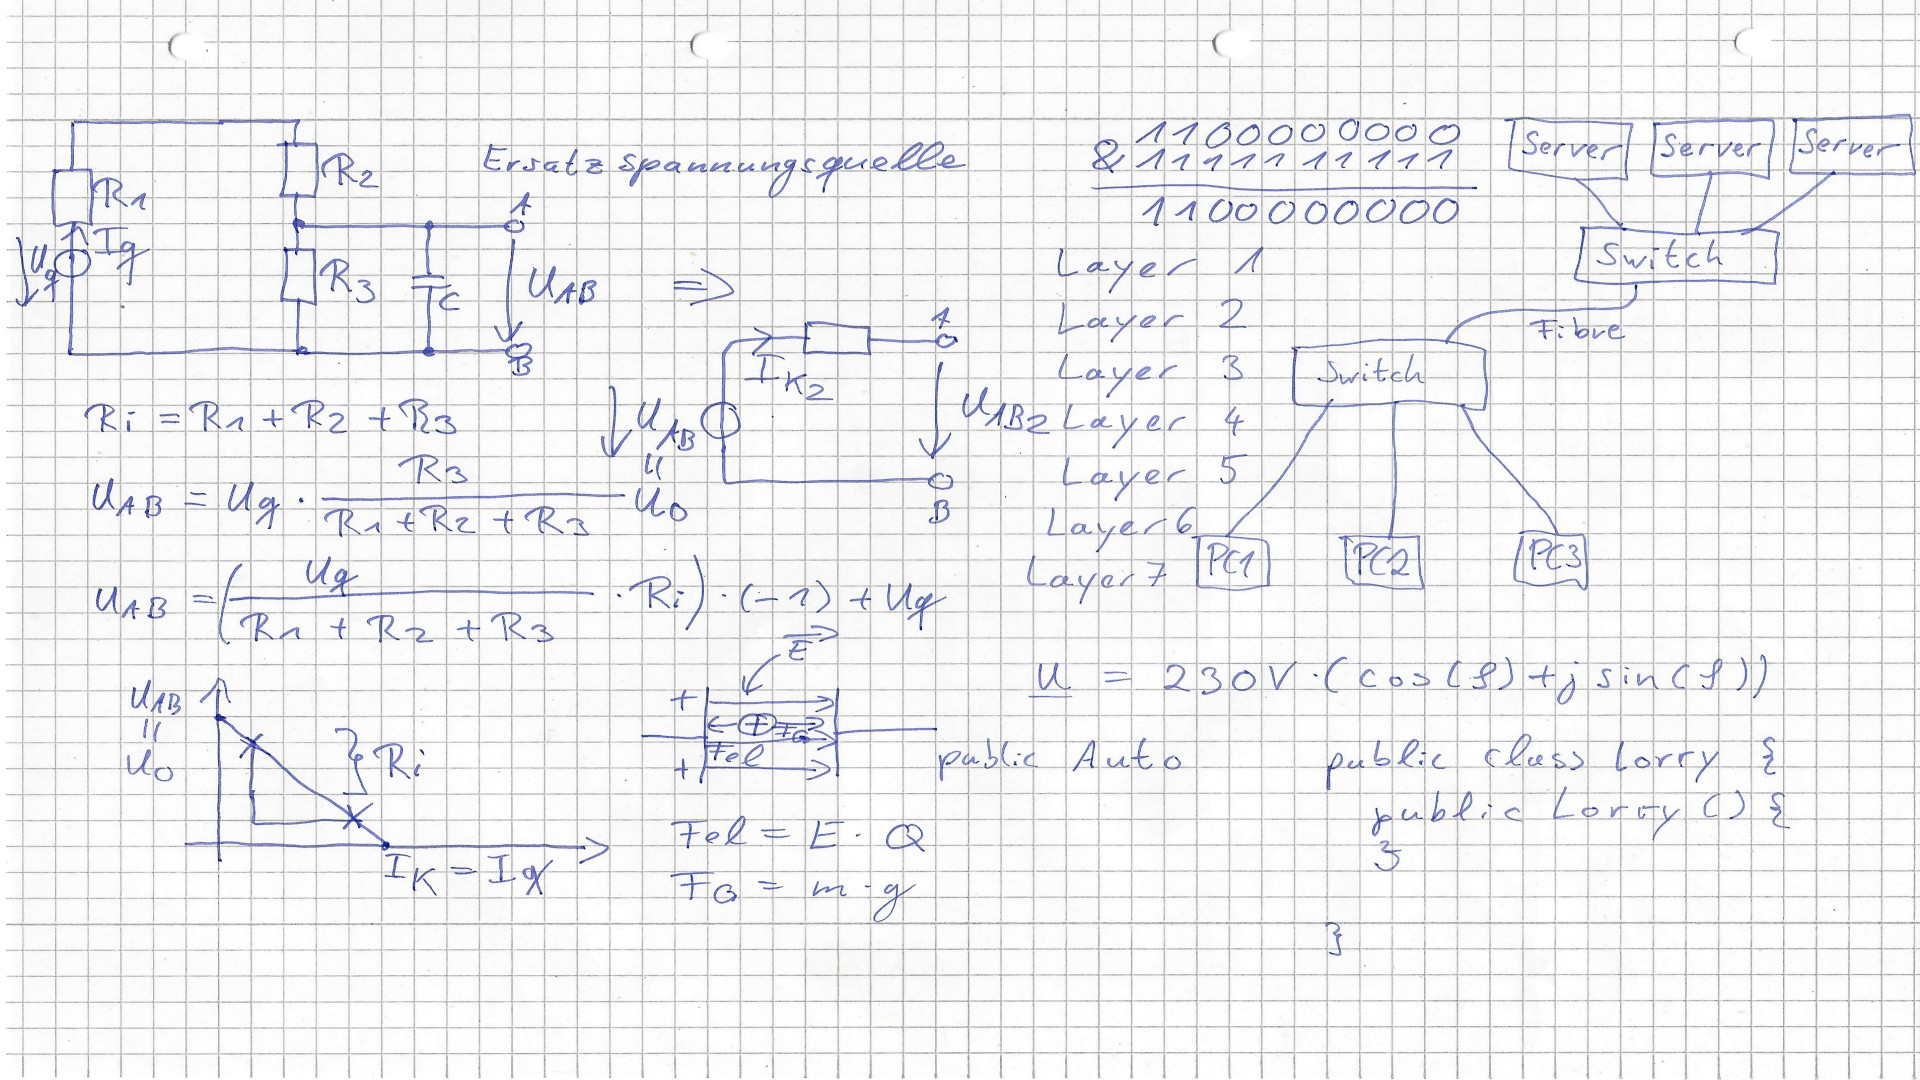 R1
Uq
Iq
R2
R3
C
A
B
UAB
Ersatzspannungsquelle
=>
IK2
A
B
UAB
=
U0
UAB2
Ri = R1 + R2 + R3
UAB = Uq · R3 / (R1 + R2 + R3)
UAB = (Uq / (R1 + R2 + R3) · Ri) · (-1) + Uq
UAB
=
U0
Ri
IK = Iq
E
+
+ FG
Fel
+
Fel = E · Q
FG = m · g
1100000000
& 1111111111
1100000000
Layer 1
Layer 2
Layer 3
Layer 4
Layer 5
Layer 6
Layer 7
Server Server Server
Switch
Fibre
Switch
PC1 PC2 PC3
U = 230V · (cos(φ) + j sin(φ))
public Auto
public class Lorry {
public Lorry () {
}
}